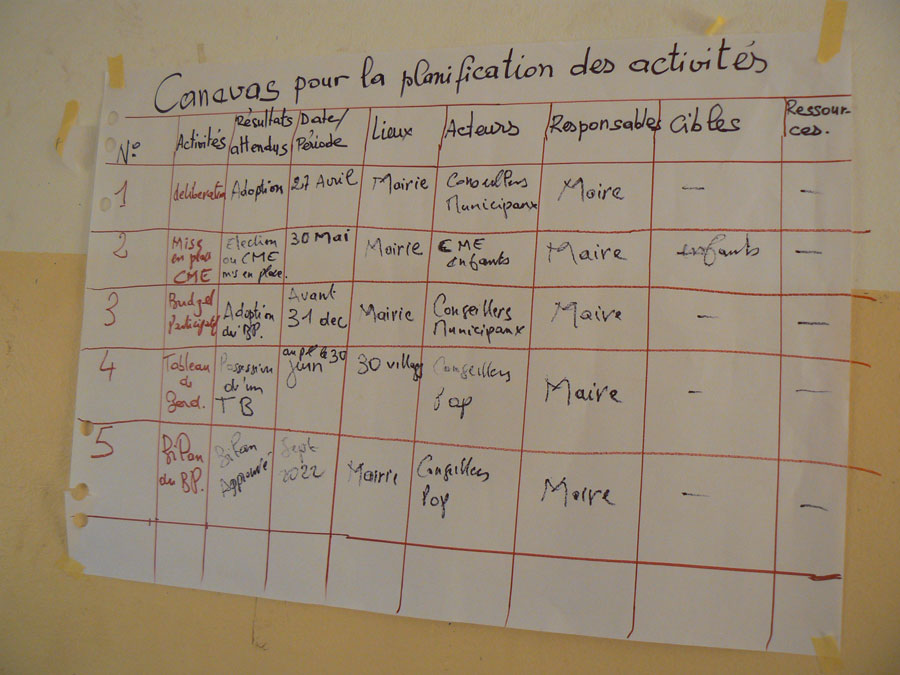 Canavas pour la planification des activités
N° Activités Résultats attendus Date/ Période Lieux Acteurs Responsables Cibles Ressour- ces.
1 deliberation Adoption 27 Avril Mairie Municipaux Maire — —
2 Mise en place CME Election du CME mis en place. 30 Mai Mairie CME enfants Maire enfants —
3 Budget Participatif Adoption du BP. Avant 31 dec Mairie Conseillers Municipaux Maire — —
4 Tableau de Bord. Possession d'un TB le 30 juin 30 villages Conseillers Pop Maire — —
5 Bilan du BP. Bilan Approuvé Sept 2022 Mairie Conseillers Pop Maire — —